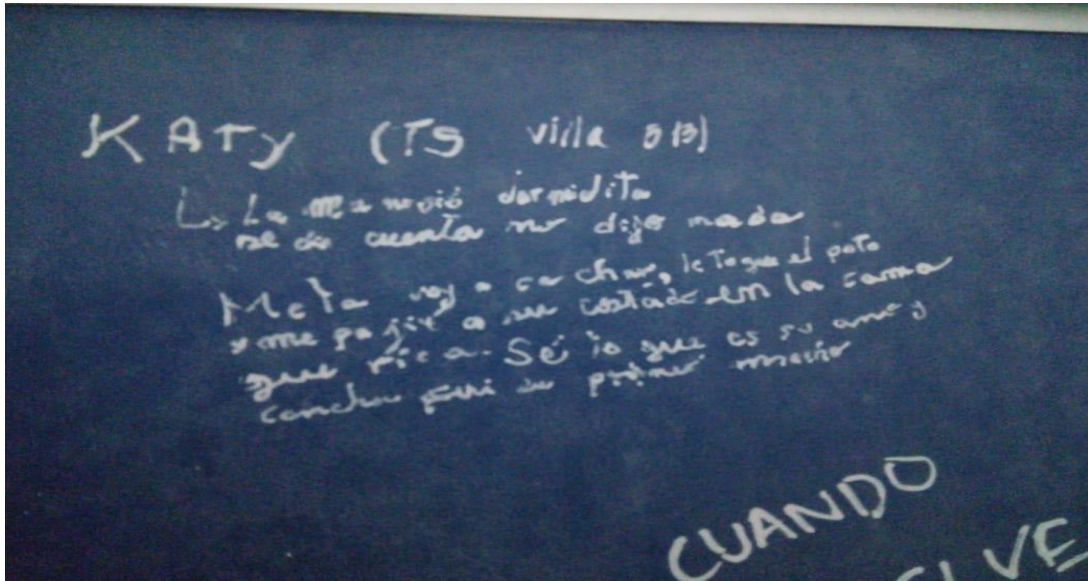 KATY (TS villa
↳ La manoseó dormidita
se dio cuenta no dijo nada
Me la voy a cachar, le toqué el poto
y me pajié a su costado en la cama
que rica. Sé lo que es su ano y
concha fui su primer macho
CUANDO